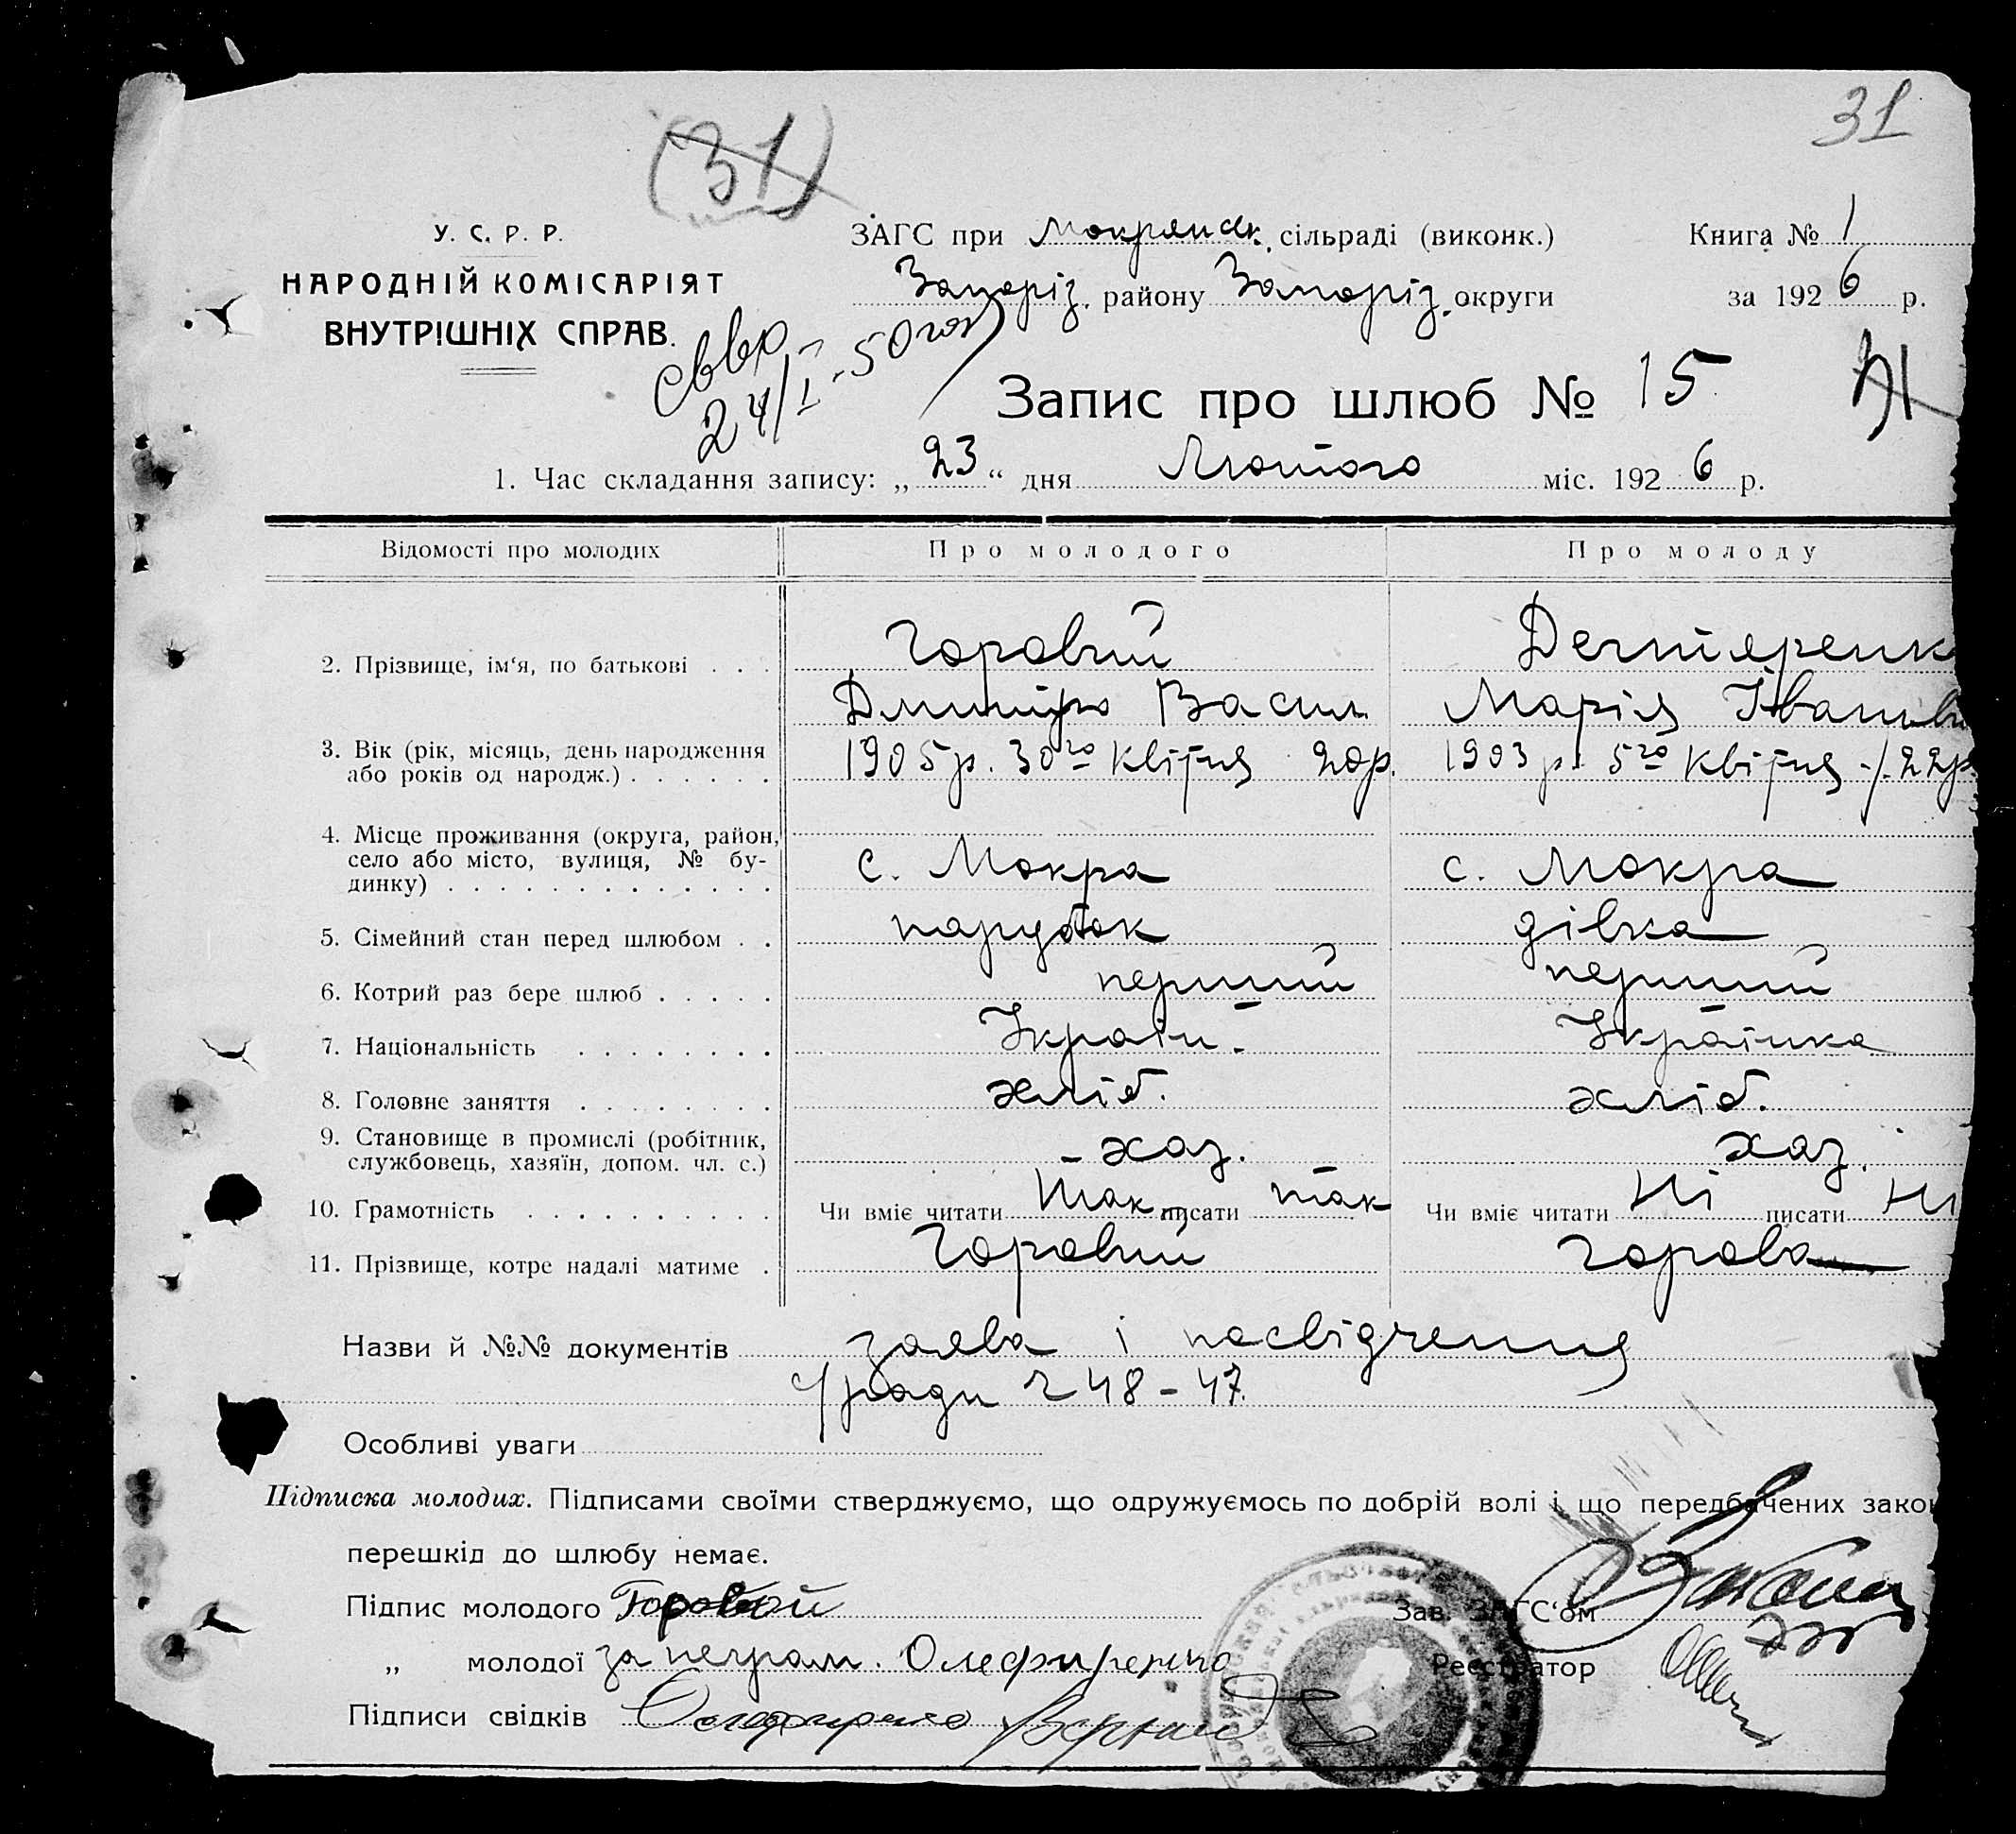 31
(31)
У. С. Р. Р.
НАРОДНІЙ КОМІСАРІЯТ
ВНУТРІШНІХ СПРАВ.
ЗАГС при Мокрянск. сільраді (виконк.)
Запоріз. району Запоріз. округи
Книга № 1
за 1926 р.
24/I-50
Запис про шлюб № 15
31
1. Час складання запису: „23“ дня Лютого міс. 1926 р.
Відомості про молодих Про молодого Про молоду
2. Прізвище, ім‘я, по батькові . . . Горовий Дегтяренк
Дмитро Васил. Марія Іванівн
3. Вік (рік, місяць, день народження 1905р. 30го квітня 20р. 1903 р. 5го квітня 22р.
або років од народж.) . . . . . .
4. Місце проживання (округа, район,
село або місто, вулиця, № бу- с. Мокра с. Мокра
динку) . . . . . . . . . . . . .
5. Сімейний стан перед шлюбом . . парубок дівка
6. Котрий раз бере шлюб . . . . . перший перший
7. Національність . . . . . . . . Україн. Українка
8. Головне заняття . . . . . . . . хліб. хліб.
9. Становище в промислі (робітник, хаз. хаз.
службовець, хазяїн, допом. чл. с.)
10. Грамотність . . . . . . . . . . Чи вміє читати так писати так Чи вміє читати Ні писати Ні
11. Прізвище, котре надалі матиме . Горовий Горова
Назви й №№ документів заява і посвідчення
с/ради ч 48-47.
Особливі уваги
Підписка молодих. Підписами своїми стверджуємо, що одружуємось по добрій волі і що передбачених зако
перешкід до шлюбу немає.
Підпис молодого Горовой Зав. ЗАГС‘ом
„ молодої за неграм. Олефиренко Реєстратор
Підписи свідків Олефиренко